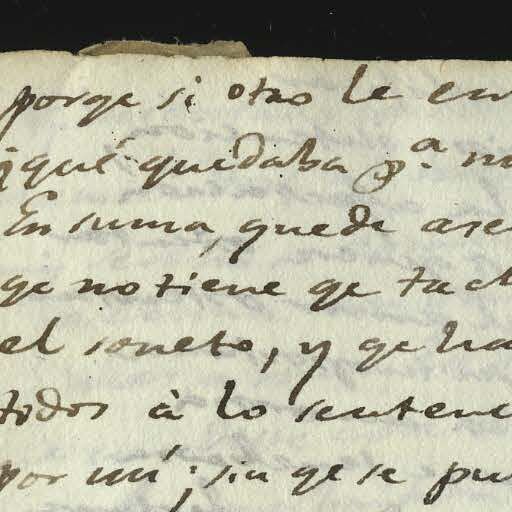 porqe si otro le en
¿qué quedaba pª. m
En suma, quede ase
qe no tiene qe tach
el soneto, y qe ha
todos à lo sentenc
por mí; sin qe se pu